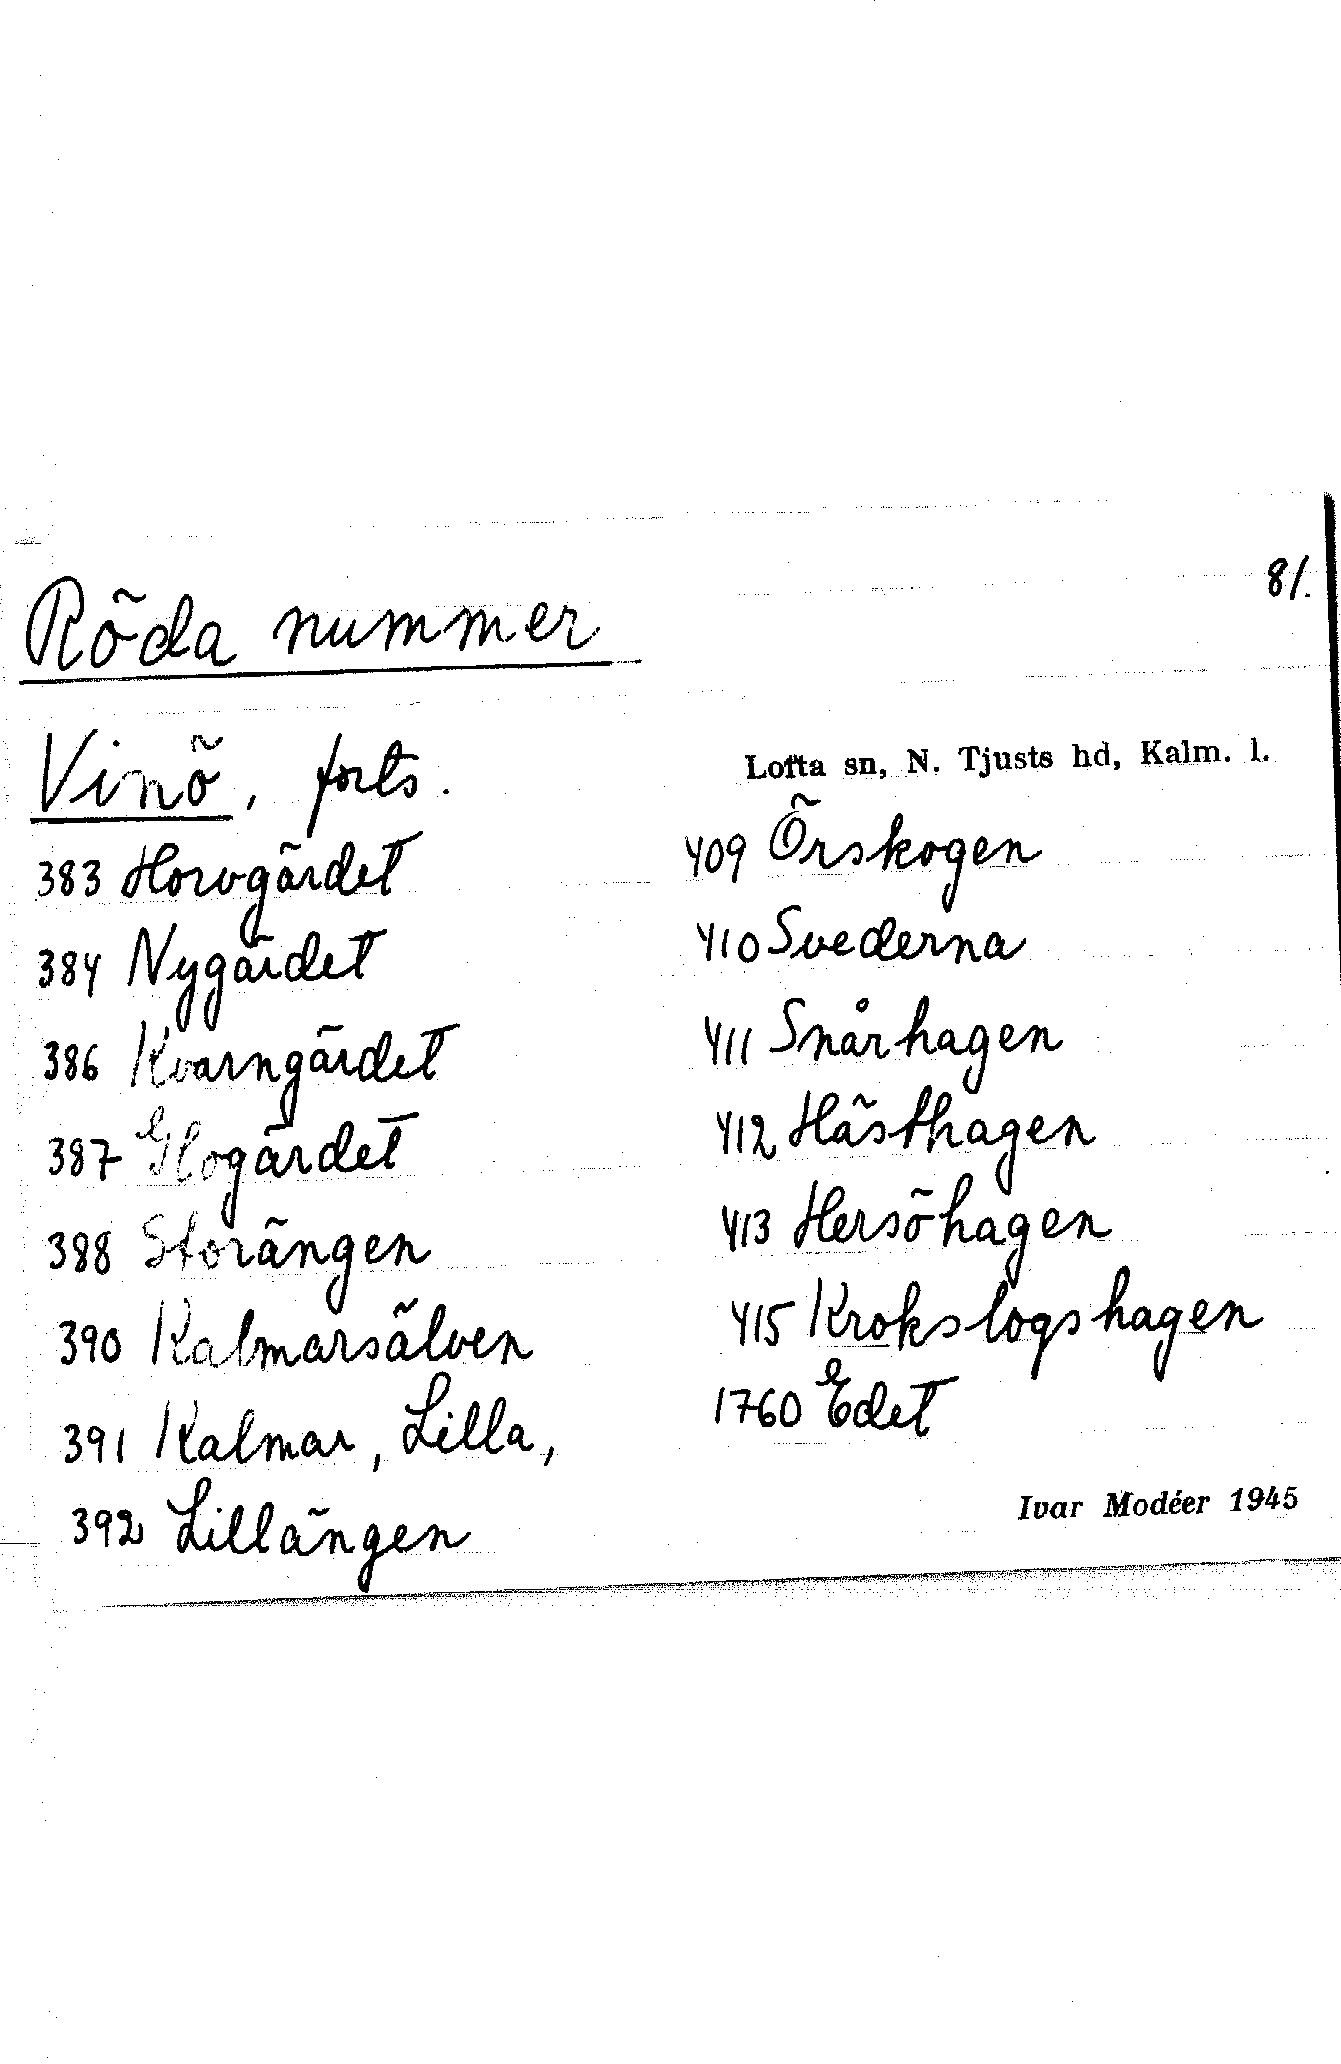 81.
Röda nummer
Vinö, forts.
383 Horvgärdet
384 Nygärdet
386 Kvarngärdet
387 Glogärdet
388 Storängen
390 Kalmarsälven
391 Kalmar, Lilla,
392 Lillängen
Lofta sn, N. Tjusts hd, Kalm. l.
409 Örskogen
410 Svederna
411 Snårhagen
412 Hästhagen
413 Hersöhagen
415 Krokslogshagen
1760 Edet
Ivar Modéer 1945